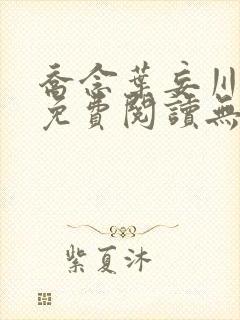 喬念葉妄川
免費閱讀無
紫夏沐